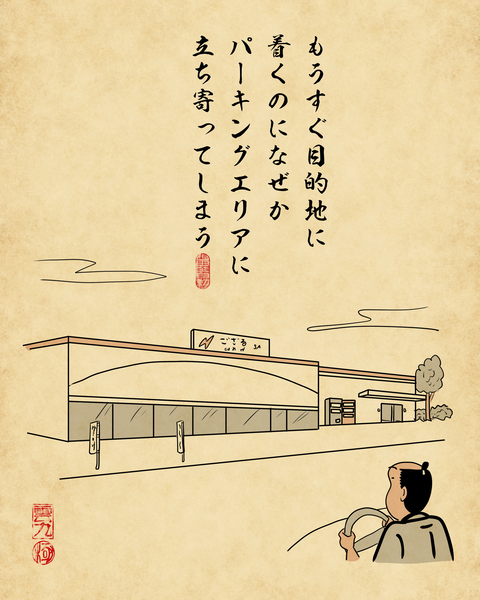 もうすぐ目的地に
着くのになぜか
パーキングエリアに
立ち寄ってしまう
ござる